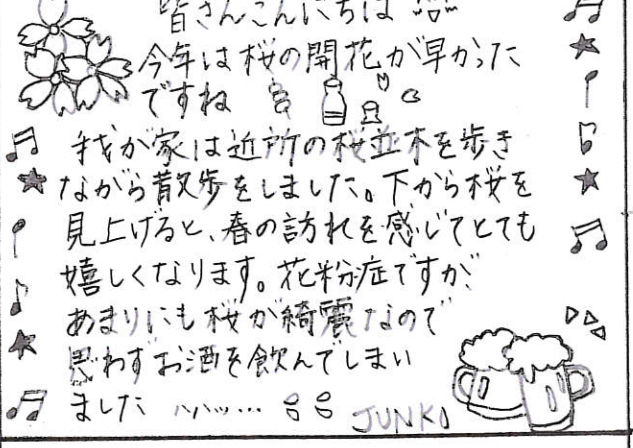 皆さんこんにちは
今年は桜の開花が早かった
ですね
我が家は近所の桜並木を歩き
ながら散歩をしました。下から桜を
見上げると、春の訪れを感じてとても
嬉しくなります。花粉症ですが、
あまりにも桜が綺麗なので
思わずお酒を飲んでしまい
ました ハハッ…
JUNKO